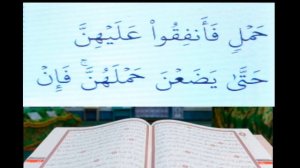 حَمْلٍ فَأَنفِقُوا۟ عَلَيْهِنَّ
حَتَّىٰ يَضَعْنَ حَمْلَهُنَّ ۚ فَإِنْ